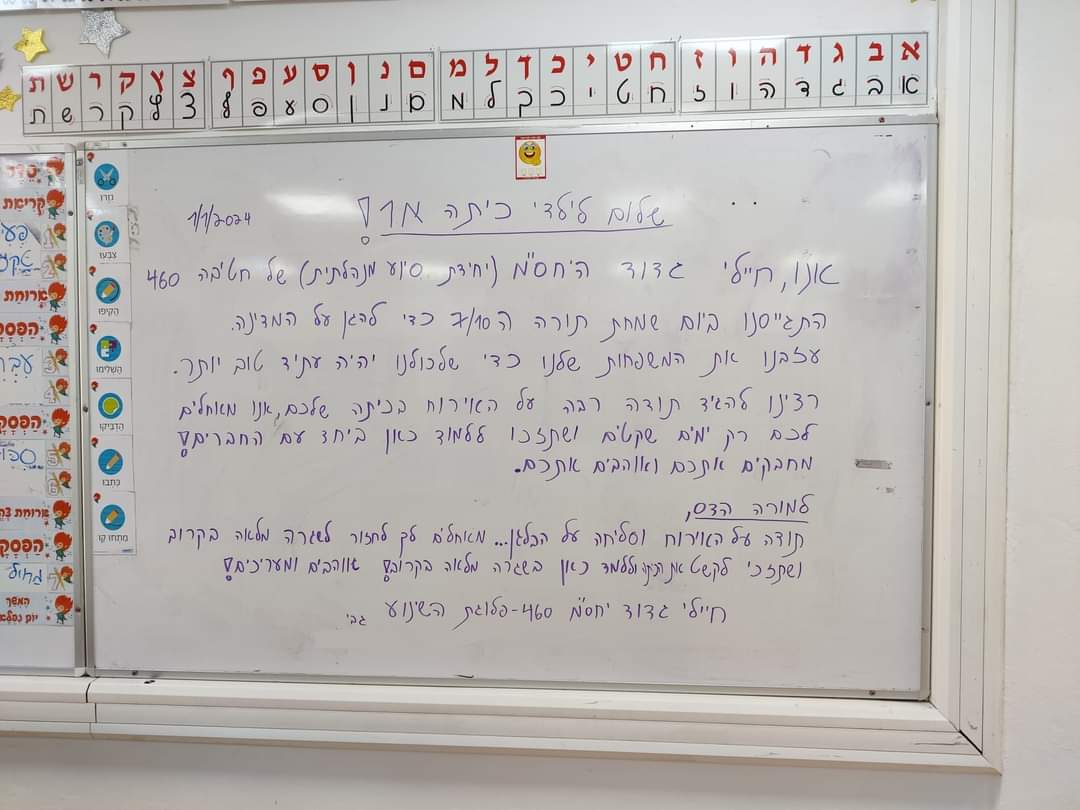 א ב ג ד ה ו ז ח ט י כ ך ל מ ם נ ן ס ע פ ף צ ץ ק ר ש ת
א ב ג ד ה ו ז ח ט י כ ך ל מ ם נ ן ס ע פ ף צ ץ ק ר ש ת
שלום לילדי כיתה א'1!
1/1/2024
אנו, חיילי גדוד היחס"מ (יחידת סיוע מנהלתית) של חטיבה 460
התגייסנו ביום שמחת תורה ה 7/10 כדי להגן על המדינה.
עזבנו את המשפחות שלנו כדי שלכולנו יהיה עתיד טוב יותר.
רצינו להגיד תודה רבה על האירוח בכיתה שלכם, אנו מאחלים
לכם רק ימים שקטים ושתזכו ללמוד כאן ביחד עם החברים!
מחבקים אתכם ואוהבים אתכם.
למורה הדס,
תודה על האירוח וסליחה על הבלגן... מאחלים לך לחזור לשגרה מלאה בקרוב
ושתזכי לקשט את הכיתה וללמד כאן בשגרה מלאה בקרוב! אוהבים ומעריכים!
חיילי גדוד יחס"מ 460 - פלוגת השינוע
גבי
גזרו
צבעו
הקיפו
השלימו
הדביקו
כתבו
מתחו קו
קריאת
1
2
ארוחת
הפסק
3
4
הפסק
5
6
ארוחת צה
הפסק
7
המשך
יום נפלא